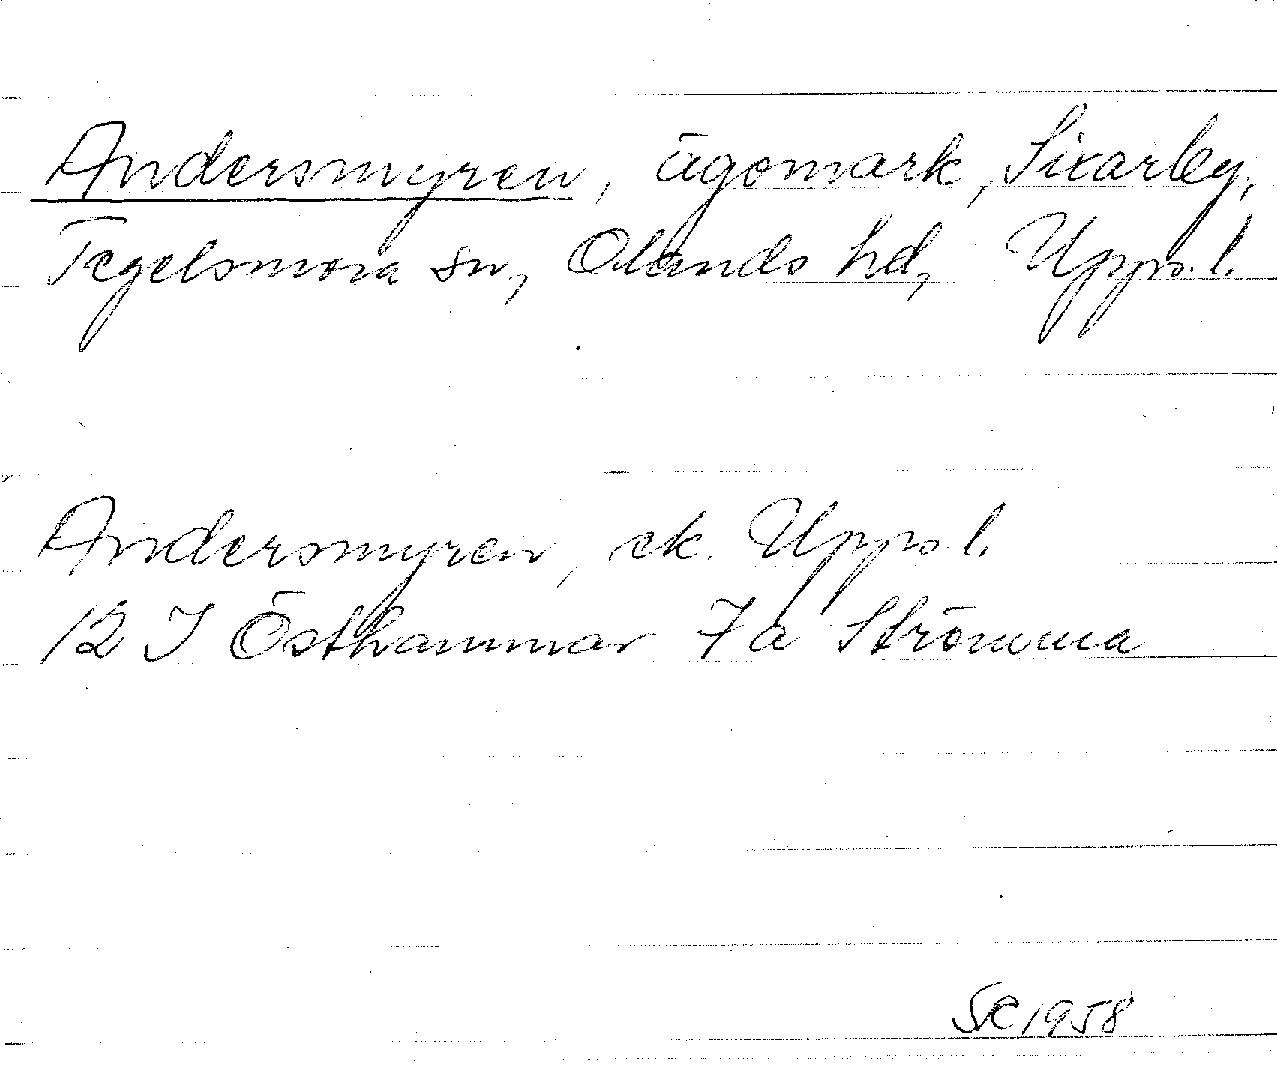 Andersmyren, ägomark, Sixarby,
Tegelsmora sn, Olands hd, Upps. l.
Andersmyren, ek. Upps. l.
12 I Östhammar 7a Strömma
1958